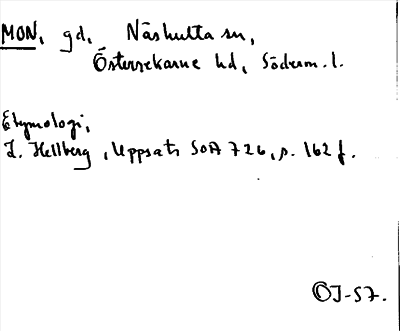 MON, gd, Näshulta sn,
Österrekarne hd, Söderm.l.
Etymologi,
L. Hellberg, Uppsats SOA 726, s. 162 f.
OJ-57.